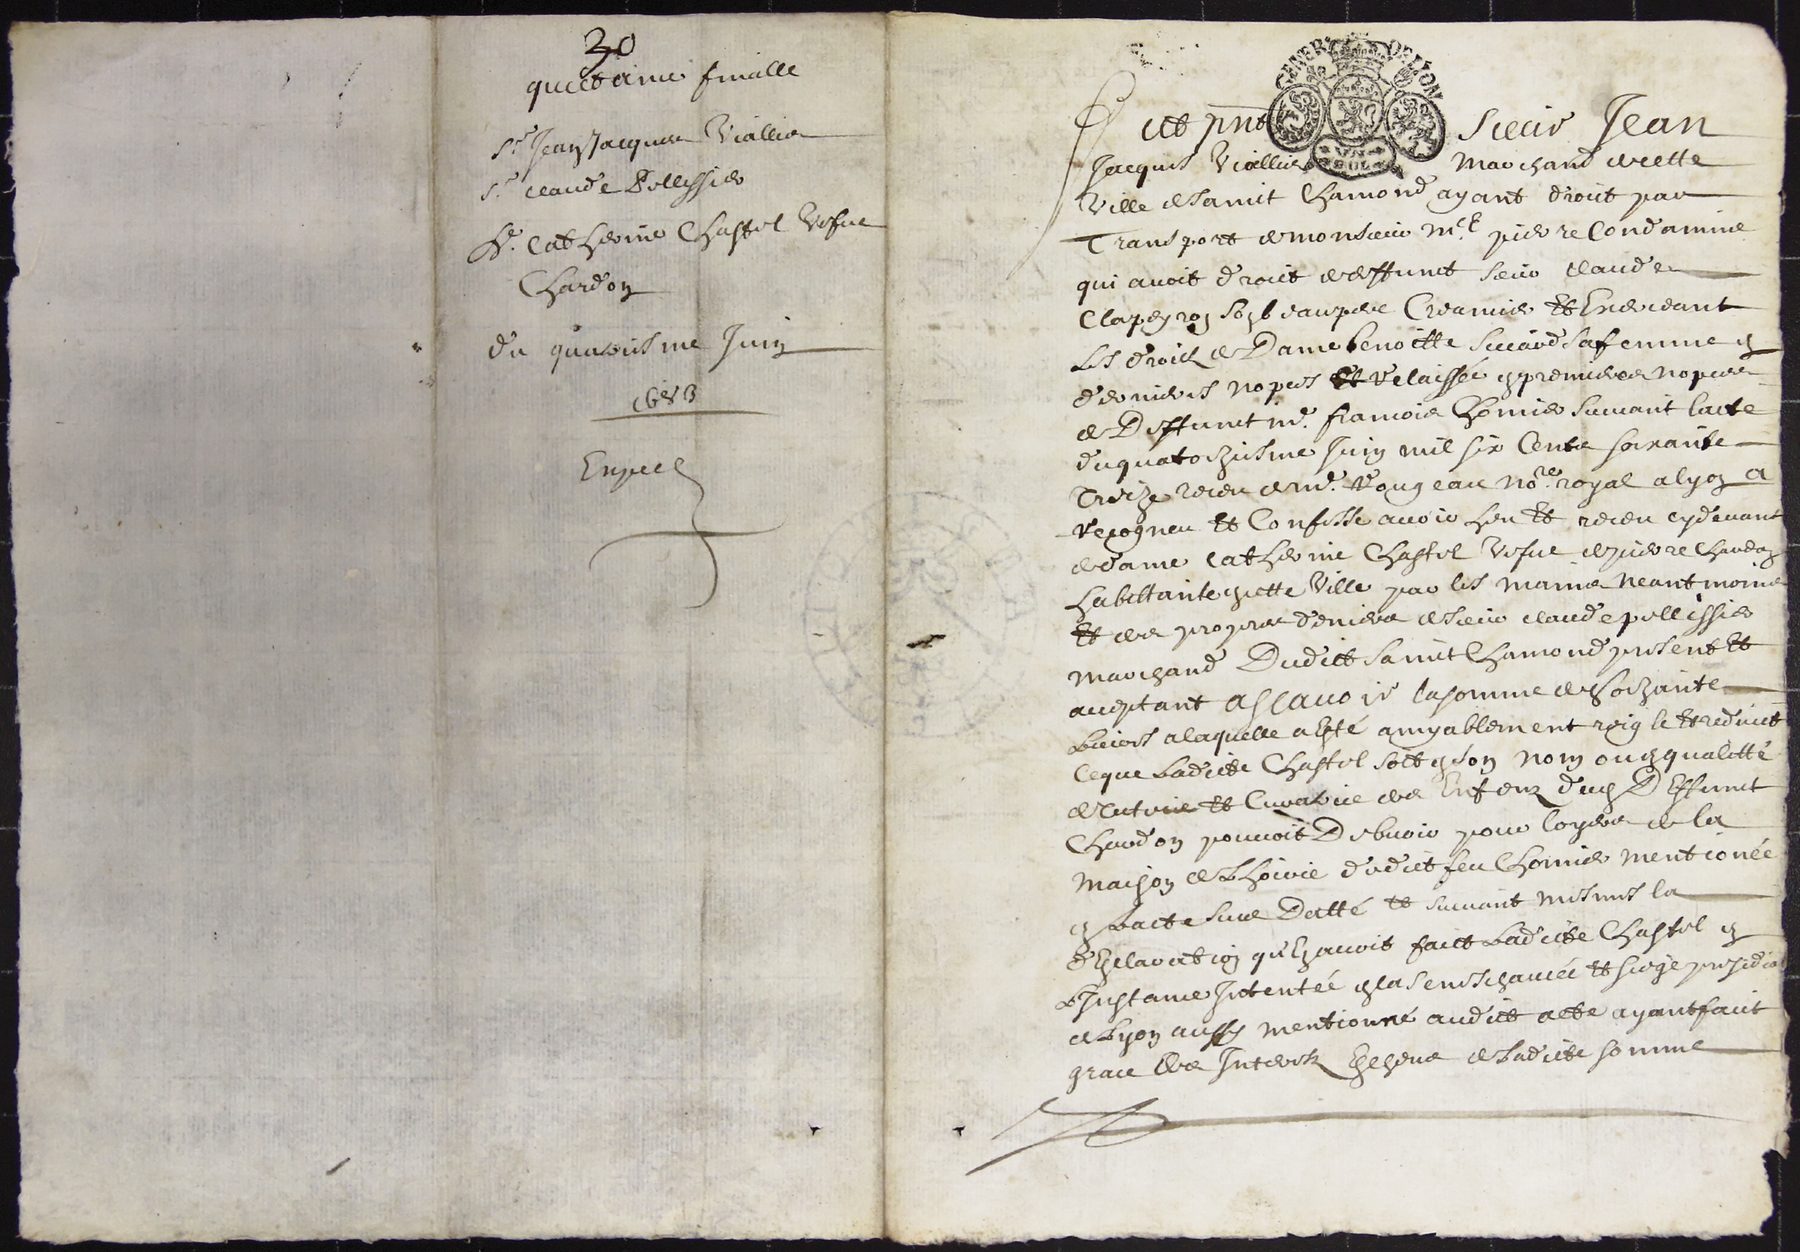 30
quictance finalle
Sr Jean Jacques Viallier
Sr Claude Pellissier
De. Catherine Chastel Vefue
Chardon
du quatriesme Juin
1683
Expéé
GENER DE LYON
UN SOL
fut pnt Sieur Jean
Jacques Viallier Marchand de cette
Ville de Sainct Chamond ayant droict par
Transport de monsieur Me pierre Condamine
qui avoit droict de deffunct sieur Claude
Clapeyron son beaupere Creancier et Exerceant
les droictz de Dame benoitte Sicard sa femme en
dernieres nopces et relaissée en premieres nopces
de Deffunct Me francois Chomier suivant lacte
du quatorziesme Juin mil six Cents soixante
Treize receu de Me. Rougeau nore. royal a lyon a
recogneu et Confesse avoir heu et receu cydevant
de dame Catherine Chastel Vefue de pierre Chardon
habittante en cette Ville par les mains neantmoins
et des propres deniers de sieur Claude pellissier
Marchand Dudict Sainct Chamond present et
acceptant ascavoir la somme de soixante
livres a laquelle a esté amyablement reigle et reduict
ce que ladicte Chastel soit en son nom ou en qualitté
de tutrice et Curatrice des Enfenz dud Deffunct
Chardon pouvoit Debvoir pour loyers de la
maison et hoirie dudict feu Chomier mentionée
en lacte sus Datté et suivant mesmes la
declaration qu'en avoit faict ladicte Chastel en
l'Instance Intentée en la seneschaucée et siege presidial
de Lyon aussy mentionné audict acte ayant faict
grace des Interestz Escheus de ladicte somme